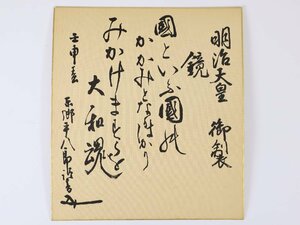 明治天皇 御製
鏡
國といふ國の
かゞみとなるばかり
みがけますらを
大和魂
壬申春
東郷平八郎謹書